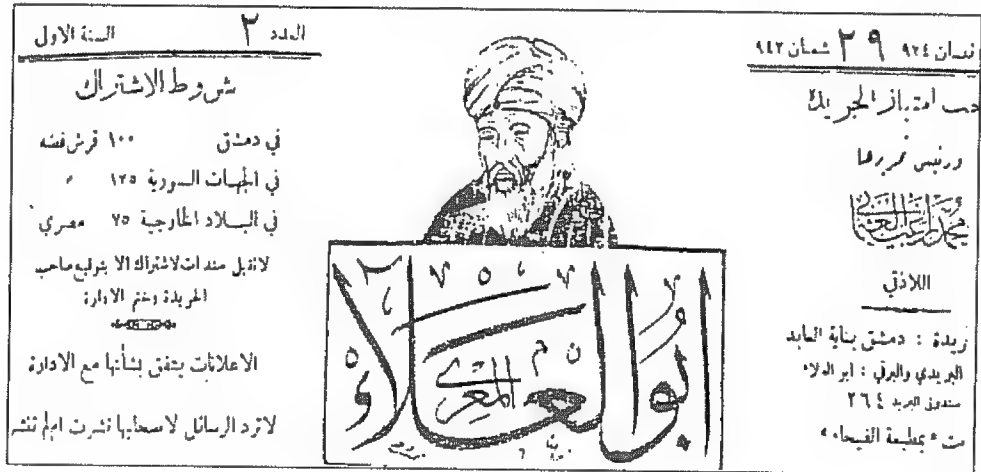 نيسان ٩٢٤ ٢٩ شعبان ٩٤٢
امتياز الجريدة
ورئيس تحريرها
محمد
اللاذقي
: دمشق بناية العابد
البريدي والبرقي : ابو العلاء
صندوق البريد ٢٦٤
بمطبعة الفيحاء
أبو العلاء
المعري
العدد ٢ السنة الاولى
شروط الاشتراك
في دمشق ١٠٠ قرش فضه
في الجهات السورية ١٢٥ »
في البلاد الخارجية ٧٥ مصري
لا تقبل سندات لاشتراك الا بتوقيع صاحب
الجريدة وختم الادارة
الاعلانات يتفق بشأنها مع الادارة
لا ترد الرسائل لاصحابها نشرت ام لم تنشر